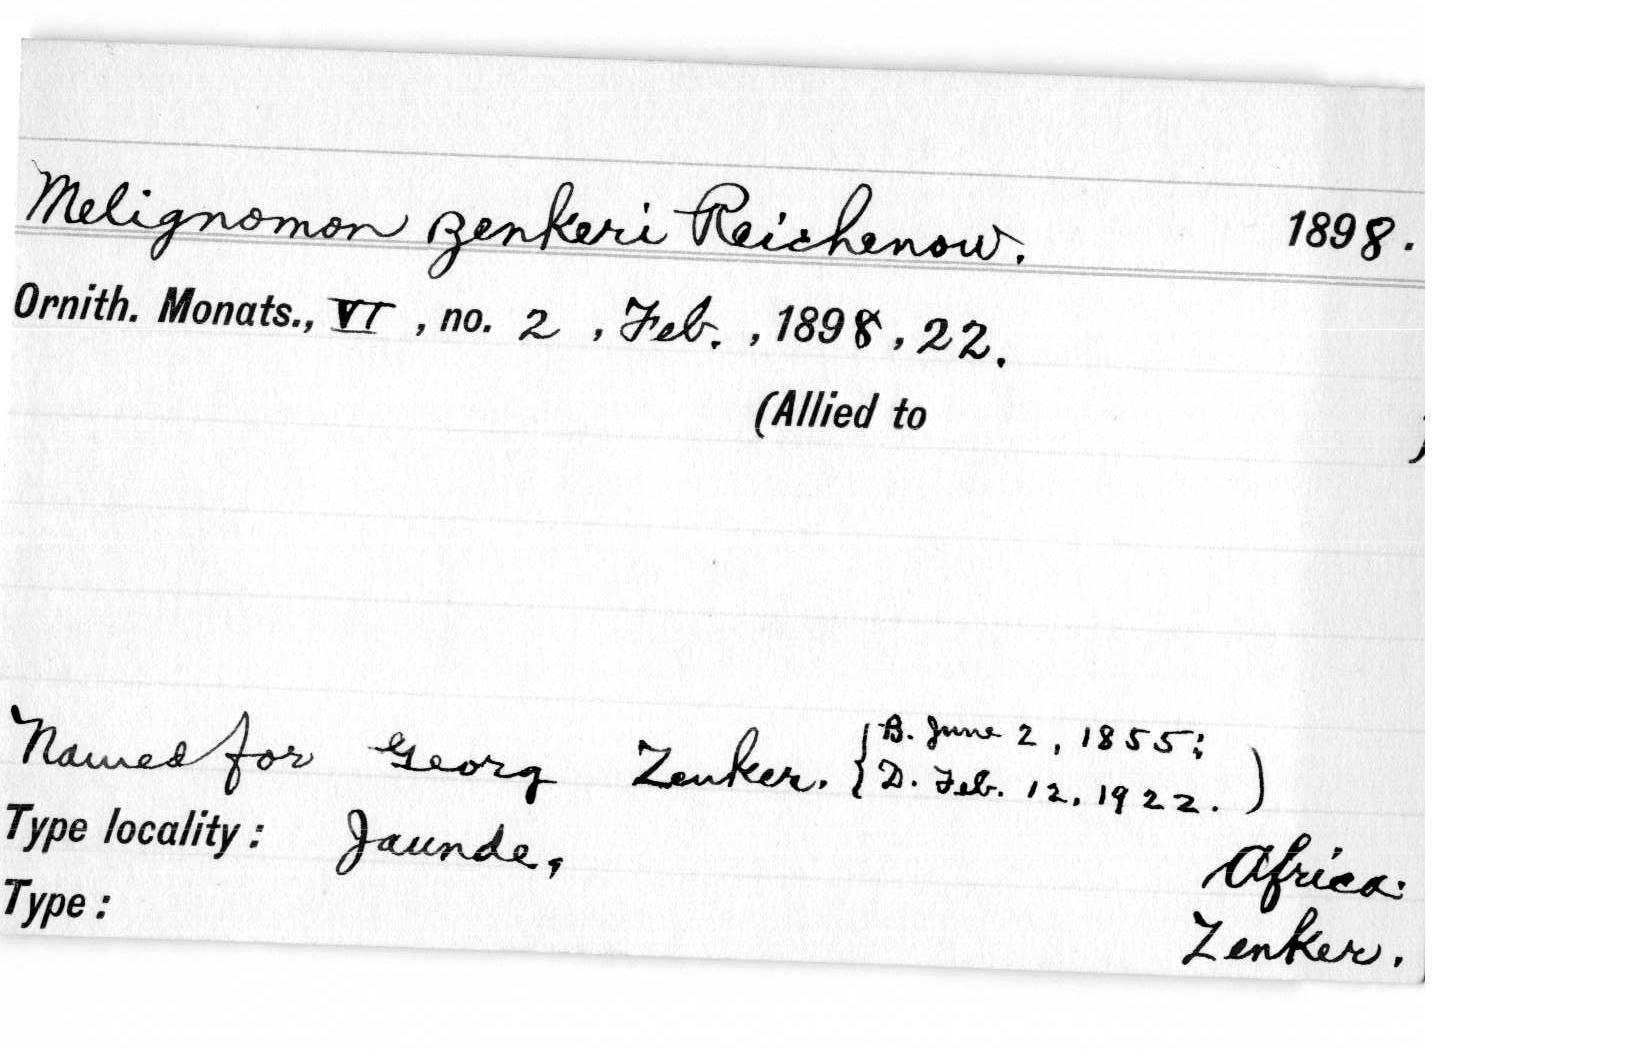 Melignomon zenkeri Reichenow. 1898.
Ornith. Monats., VI, no. 2, Feb., 1898, 22.
(Allied to )
Named for Georg Zenker. {B. June 2, 1855;
D. Feb. 12, 1922.)
Type locality: Jaunde, Africa.
Type: Zenker.